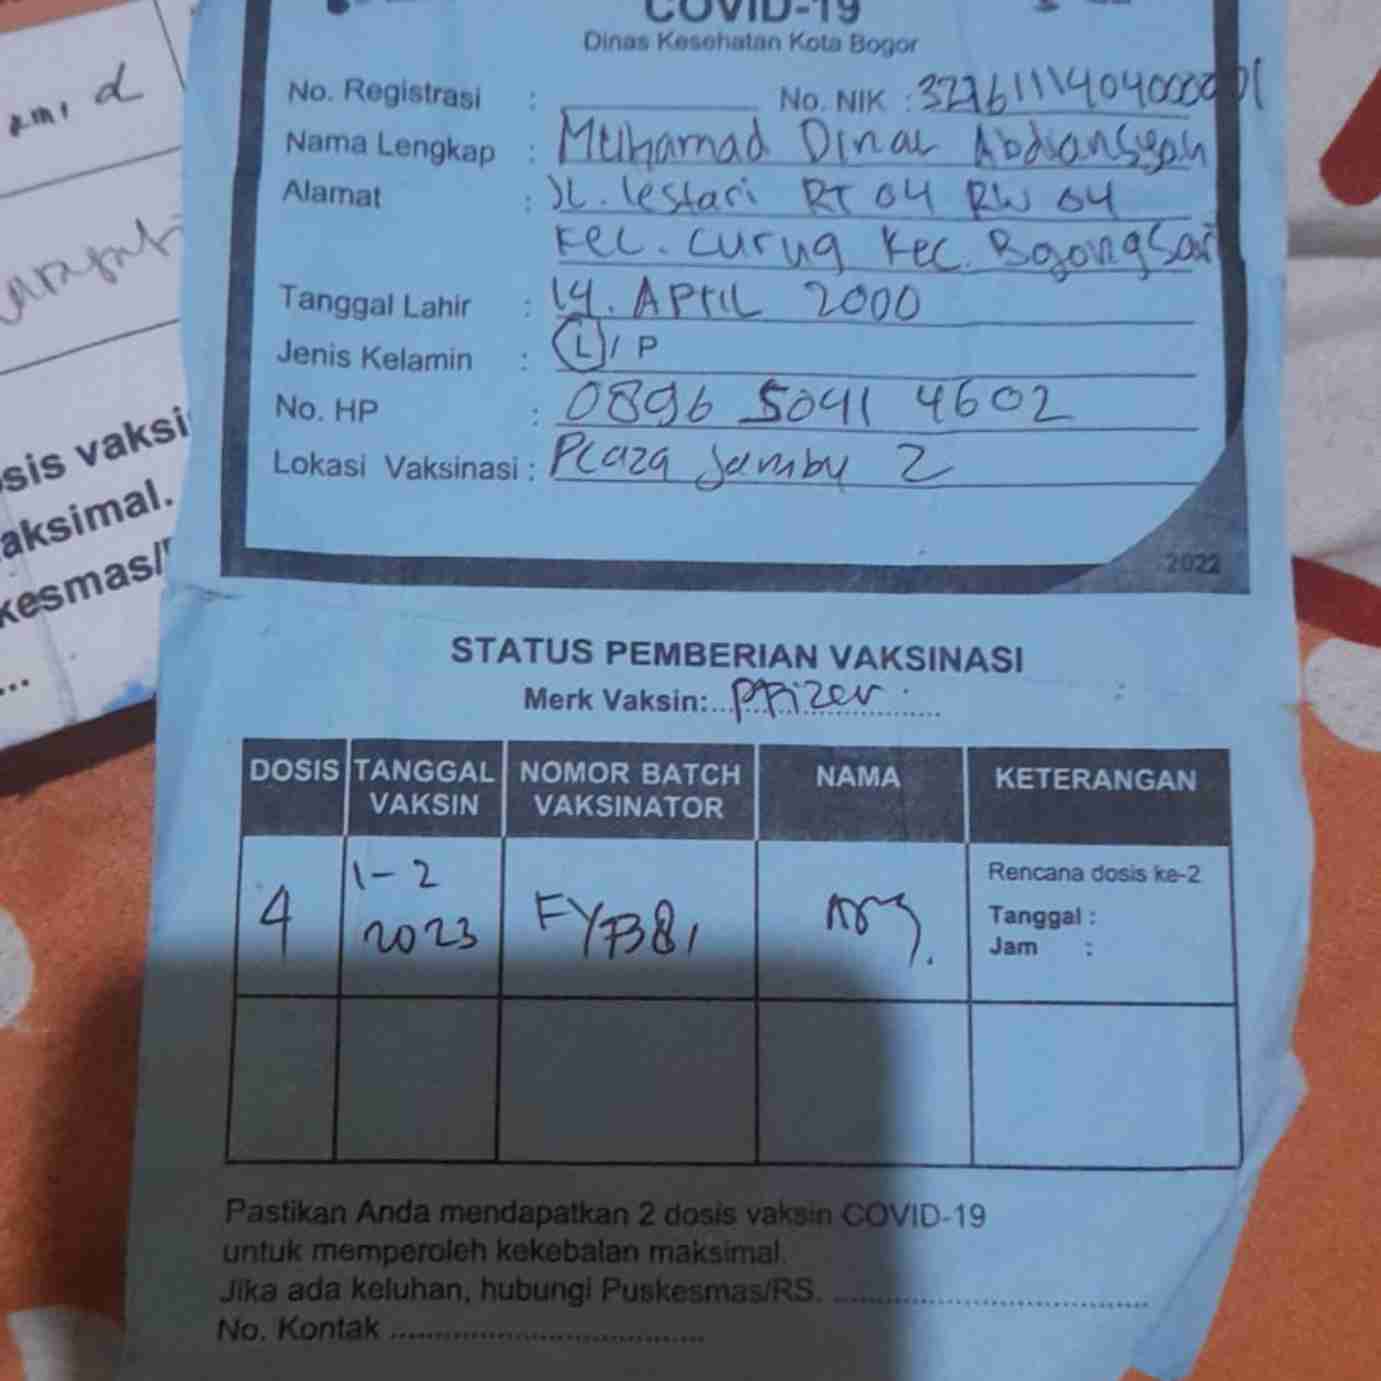 COVID-19
Dinas Kesehatan Kota Bogor
No. Registrasi : No. NIK :
Nama Lengkap : Muhamad Dinar Abdiansyah
Alamat : JL. lestari RT 04 RW 04
Kel. curug Kec. Bogong Sari
Tanggal Lahir : 14. APril 2000
Jenis Kelamin : L / P
No. HP : 0896 5041 4602
Lokasi Vaksinasi : Plaza Jambu 2
2022
STATUS PEMBERIAN VAKSINASI
Merk Vaksin: Pfizer
DOSIS TANGGAL VAKSIN NOMOR BATCH VAKSINATOR NAMA KETERANGAN
4 1-2 2023 Rencana dosis ke-2
Tanggal :
Jam :
Pastikan Anda mendapatkan 2 dosis vaksin COVID-19
untuk memperoleh kekebalan maksimal.
Jika ada keluhan, hubungi Puskesmas/RS. ....................
No. Kontak ....................
sis vaksi
aksimal.
kesmas/
...